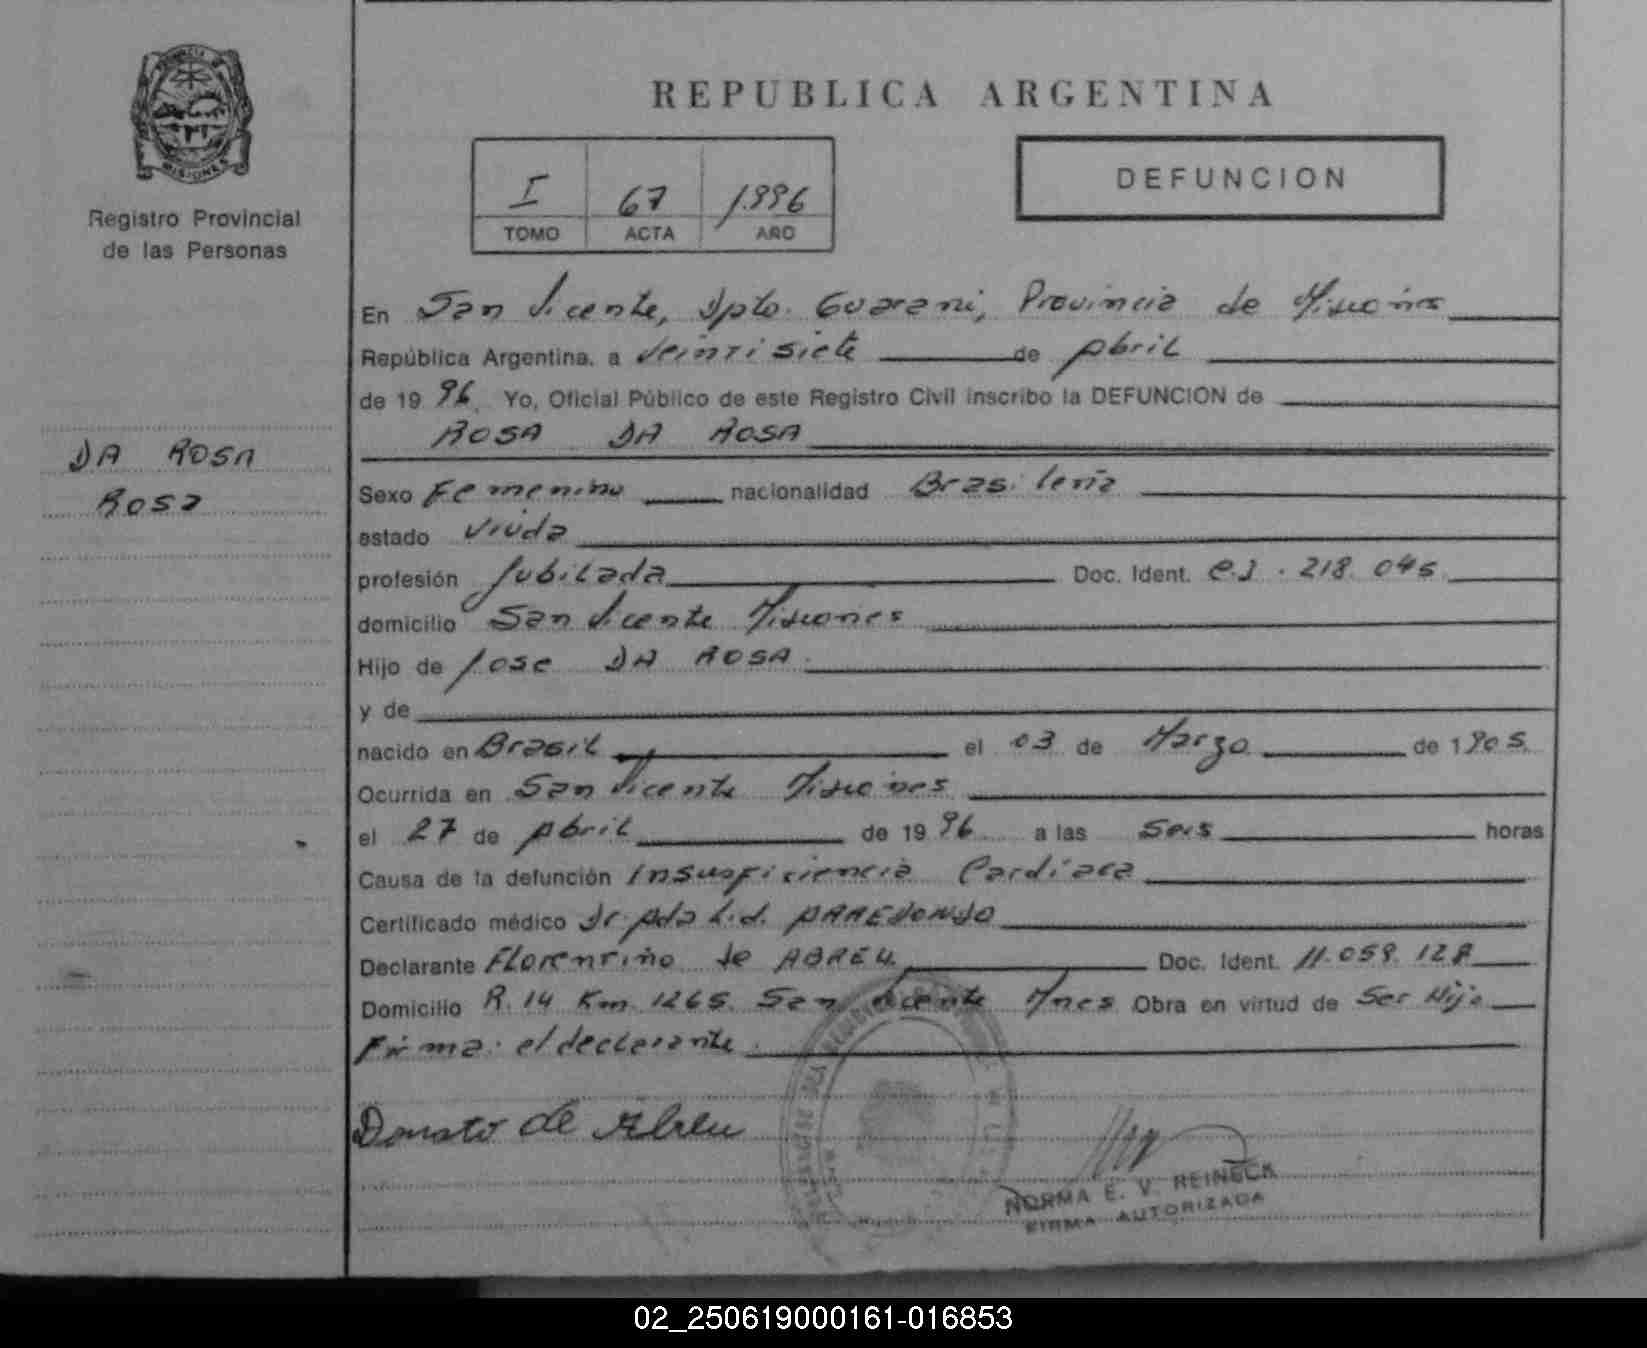 PROVINCIA DE
MISIONES
Registro Provincial
de las Personas
DA ROSA
Rosa
REPUBLICA ARGENTINA
I 67 1.996
TOMO ACTA AÑO
DEFUNCION
En San Vicente, Dpto. Guarani, Provincia de Misiones
República Argentina, a Veintisiete de Abril
de 1996. Yo, Oficial Público de este Registro Civil inscribo la DEFUNCION de
ROSA DA ROSA
Sexo Femenino nacionalidad Brasileña
estado Viuda
profesión Jubilada Doc. Ident. C.I. 218.045
domicilio San Vicente Misiones
Hijo de Jose DA ROSA
y de
nacido en Brasil el 03 de Marzo de 1905
Ocurrida en San Vicente Misiones
el 27 de Abril de 1996 a las Seis horas
Causa de la defunción Insuficiencia Cardiaca
Certificado médico Dr
Declarante Florentino de ABREU Doc. Ident. 11.059.128
Domicilio R. 14 Km. 1265. San Vicente Mnes Obra en virtud de Ser Hijo
Firma: el declarante.
Donato de Abreu
NORMA E. V. REINECK
FIRMA AUTORIZADA
02_250619000161-016853